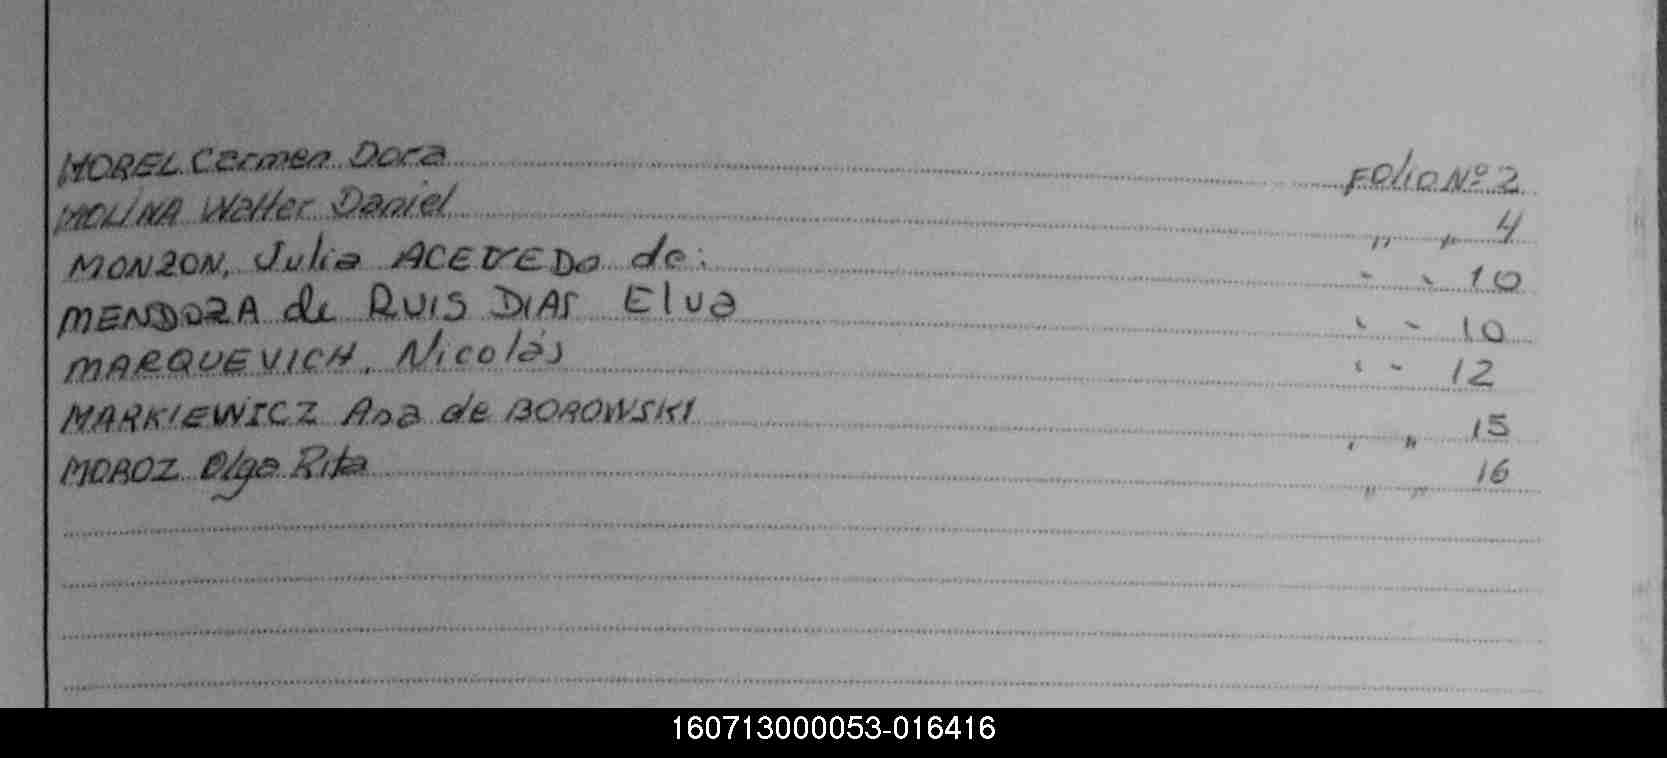 MOREL Carmen Dora FOLIO Nº 2
MOLINA Walter Daniel " " 4
MONZON, Julia ACEVEDO de: " " 10
MENDOZA de RUIS DIAS Elva " " 10
MARQUEVICH, Nicolás " " 12
MARKIEWICZ Ana de BOROWSKI " " 15
MOROZ Olga Rita " " 16
160713000053-016416